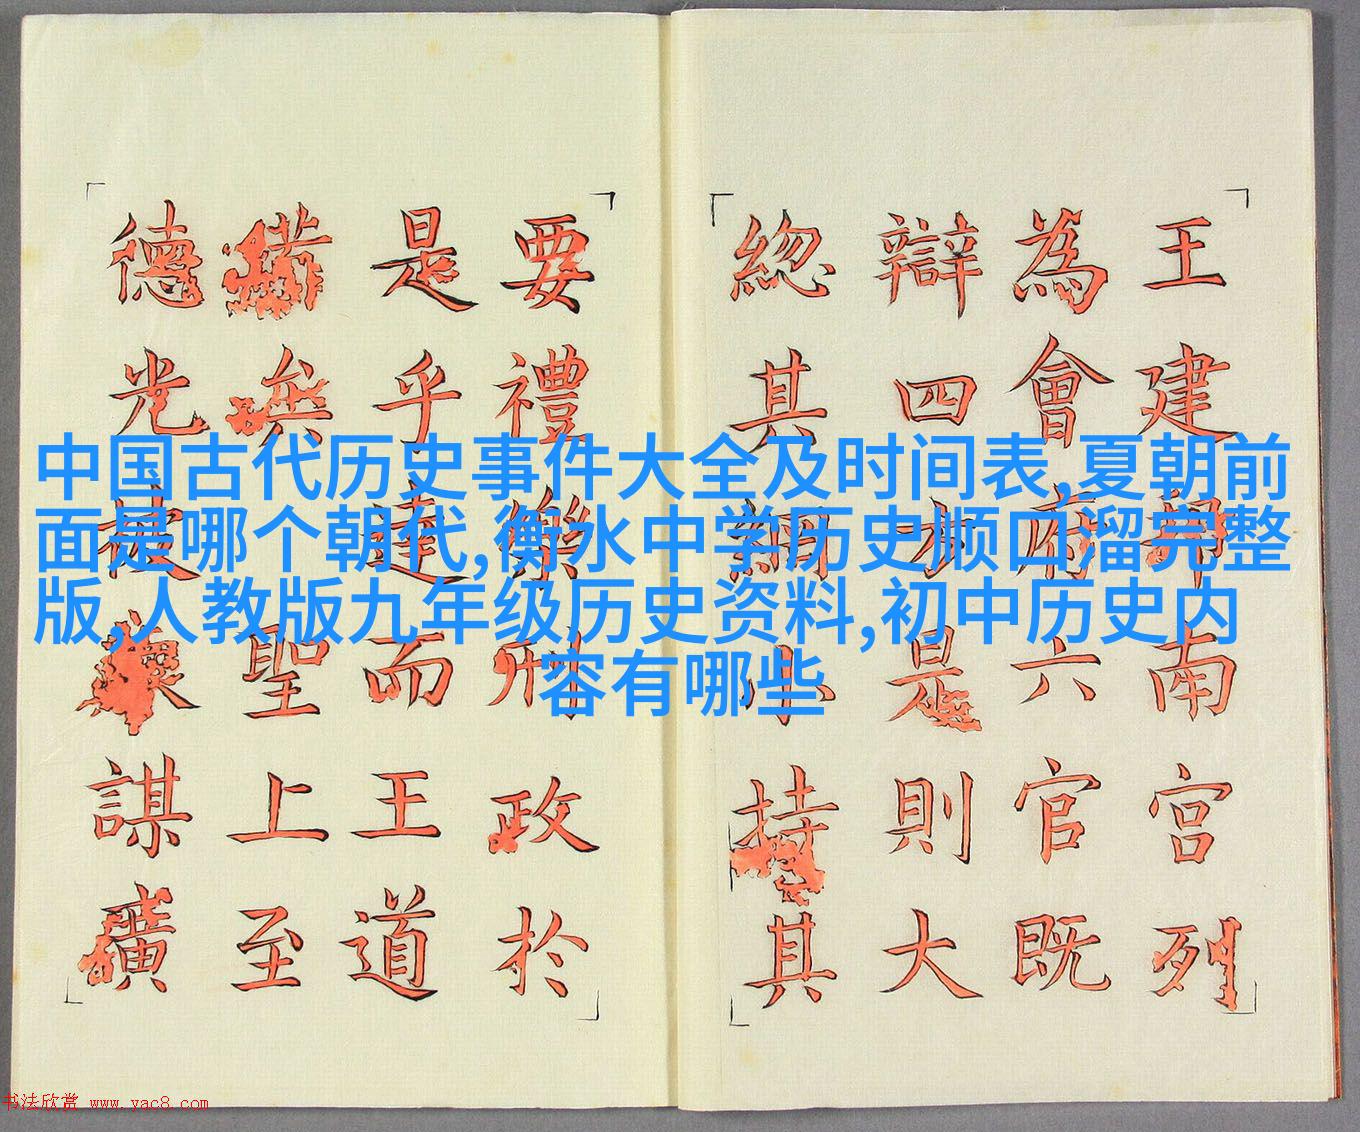 中国古代历史事件大全及时间表,夏朝前
面是哪个朝代,衡水中学历史顺口溜完整
版,人教版九年级历史资料,初中历史内
容有哪些
王建南宮列
為會府六官既
辯四是則大
總其小持其
要禮樂刑政於
是乎達而王道
備矣聖上至
德光被謀
书法欣赏 www.yac8.com